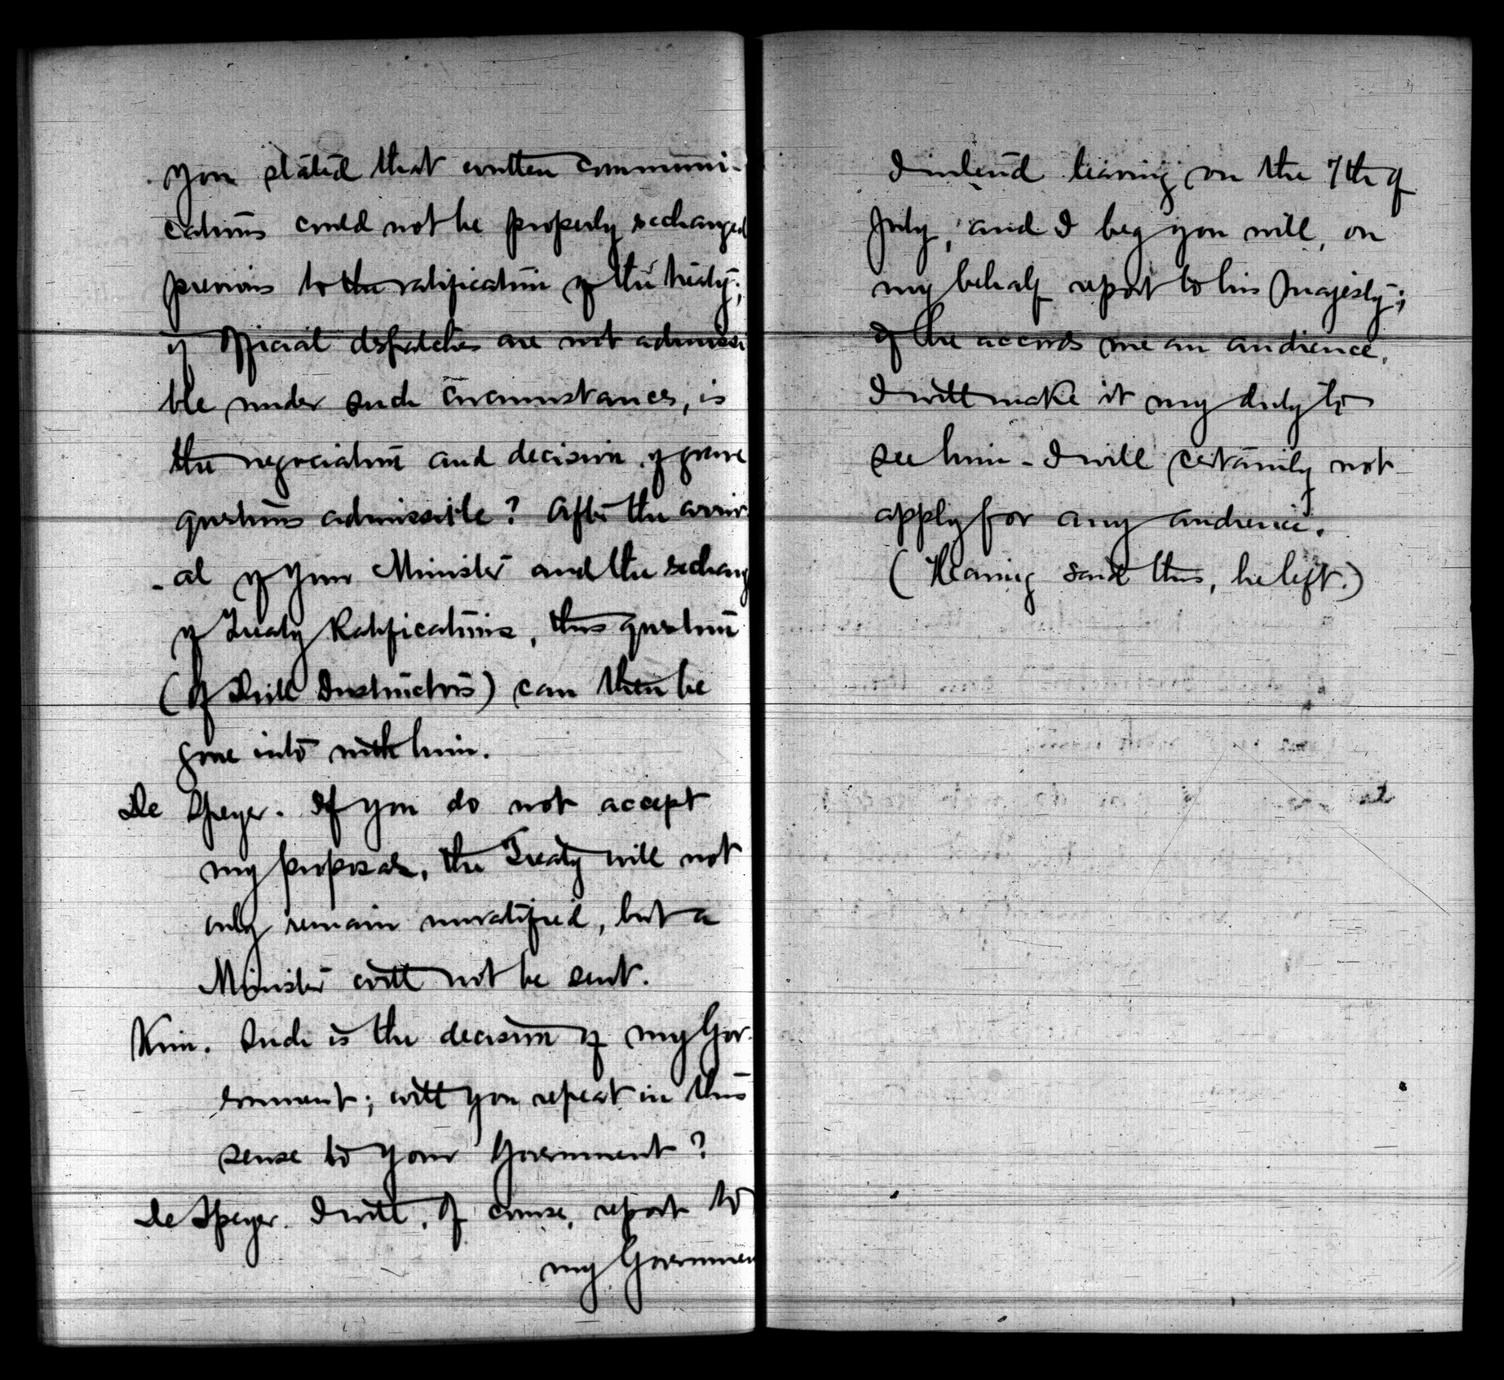 you stated that written communi-
cations could not be properly exchanged
previous to the ratification of the treaty;
if official dispatches are not admissi
ble under such circumstances, is
the negociation and decision of grave
questions admissible? After the arriv
-al of your Minister and the exchang
of Treaty Ratifications, this question
(of Drill Instructors) can then be
gone into with him.
De Speyer. If you do not accept
my proposal, the Treaty will not
only remain unratified, but a
Minister will not be sent.
Kim. Such is the decision of my Gov-
ernment; will you repeat in this
sense to your Government?
De Speyer. I will, of course, report to
my Governmen
I intend leaving on the 7th of
July, and I beg you will, on
my behalf report to his Majesty;
if he accords me an audience,
I will make it my duty to
see him - I will certainly not
apply for any audience.
(Having said this, he left.)